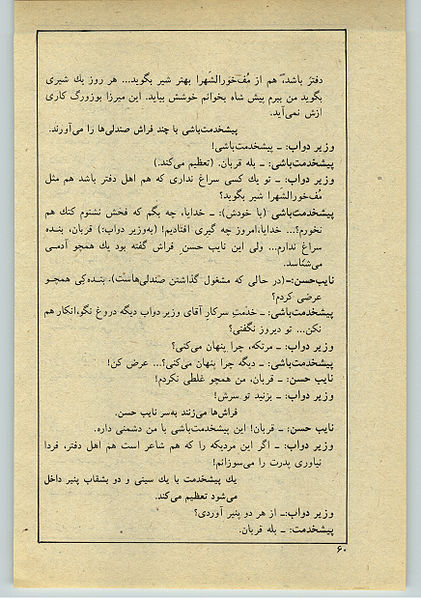 دفتر باشد، هم از مُف‌خورالشهرا بهتر شیر بگوید... هر روز یك شیری
بگوید من ببرم پیش شاه بخوانم خوشش بیاید. این میرزا بوزورگ کاری
ازش نمی‌آید.
پیشخدمت‌باشی با چند فراش صندلی‌ها را می‌آورند.
وزیر دواب: ـ پیشخدمت‌باشی!
پیشخدمت‌باشی: ـ بله قربان. (تعظیم می‌کند.)
وزیر دواب: ـ تو یك کسی سراغ نداری که هم اهل دفتر باشد هم مثل
مُف‌خورالشهرا شیر بگوید؟
پیشخدمت‌باشی (با خودش): ـ خدایا، چه بگم که فحش نشنوم کتك هم
نخورم؟... خدایا، امروز چه گیری افتادیم! (به‌وزیر دواب:) قربان، بنده
سراغ ندارم... ولی این نایب حسن فراش گفته بود یك همچو آدمی
می‌شناسد.
نایب‌حسن:ـ (در حالی که مشغول گذاشتن صندلی‌هاست). بنده‌کی همچو
عرضی کردم؟
پیشخدمت‌باشی: ـ خدمت سرکار آقای وزیر دواب دیگه دروغ نگو، انکار هم
نکن... تو دیروز نگفتی؟
وزیر دواب: ـ مرتکه، چرا پنهان می‌کنی؟
پیشخدمت‌باشی: ـ دیگه چرا پنهان می‌کنی؟... عرض کن!
نایب حسن: ـ قربان، من همچو غلطی نکردم!
وزیر دواب: ـ بزنید تو سرش!
فراش‌ها می‌زنند به‌سر نایب حسن.
نایب حسن: ـ قربان! این پیشخدمت‌باشی با من دشمنی داره.
وزیر دواب: ـ اگر این مردیکه را که هم شاعر است هم اهل دفتر، فردا
نیاوری پدرت را می‌سوزانم!
یك پیشخدمت با یك سینی و دو بشقاب پنیر داخل
می‌شود تعظیم می‌کند.
وزیر دواب:ـ از هر دو پنیر آوردی؟
پیشخدمت: ـ بله قربان.
۶۰